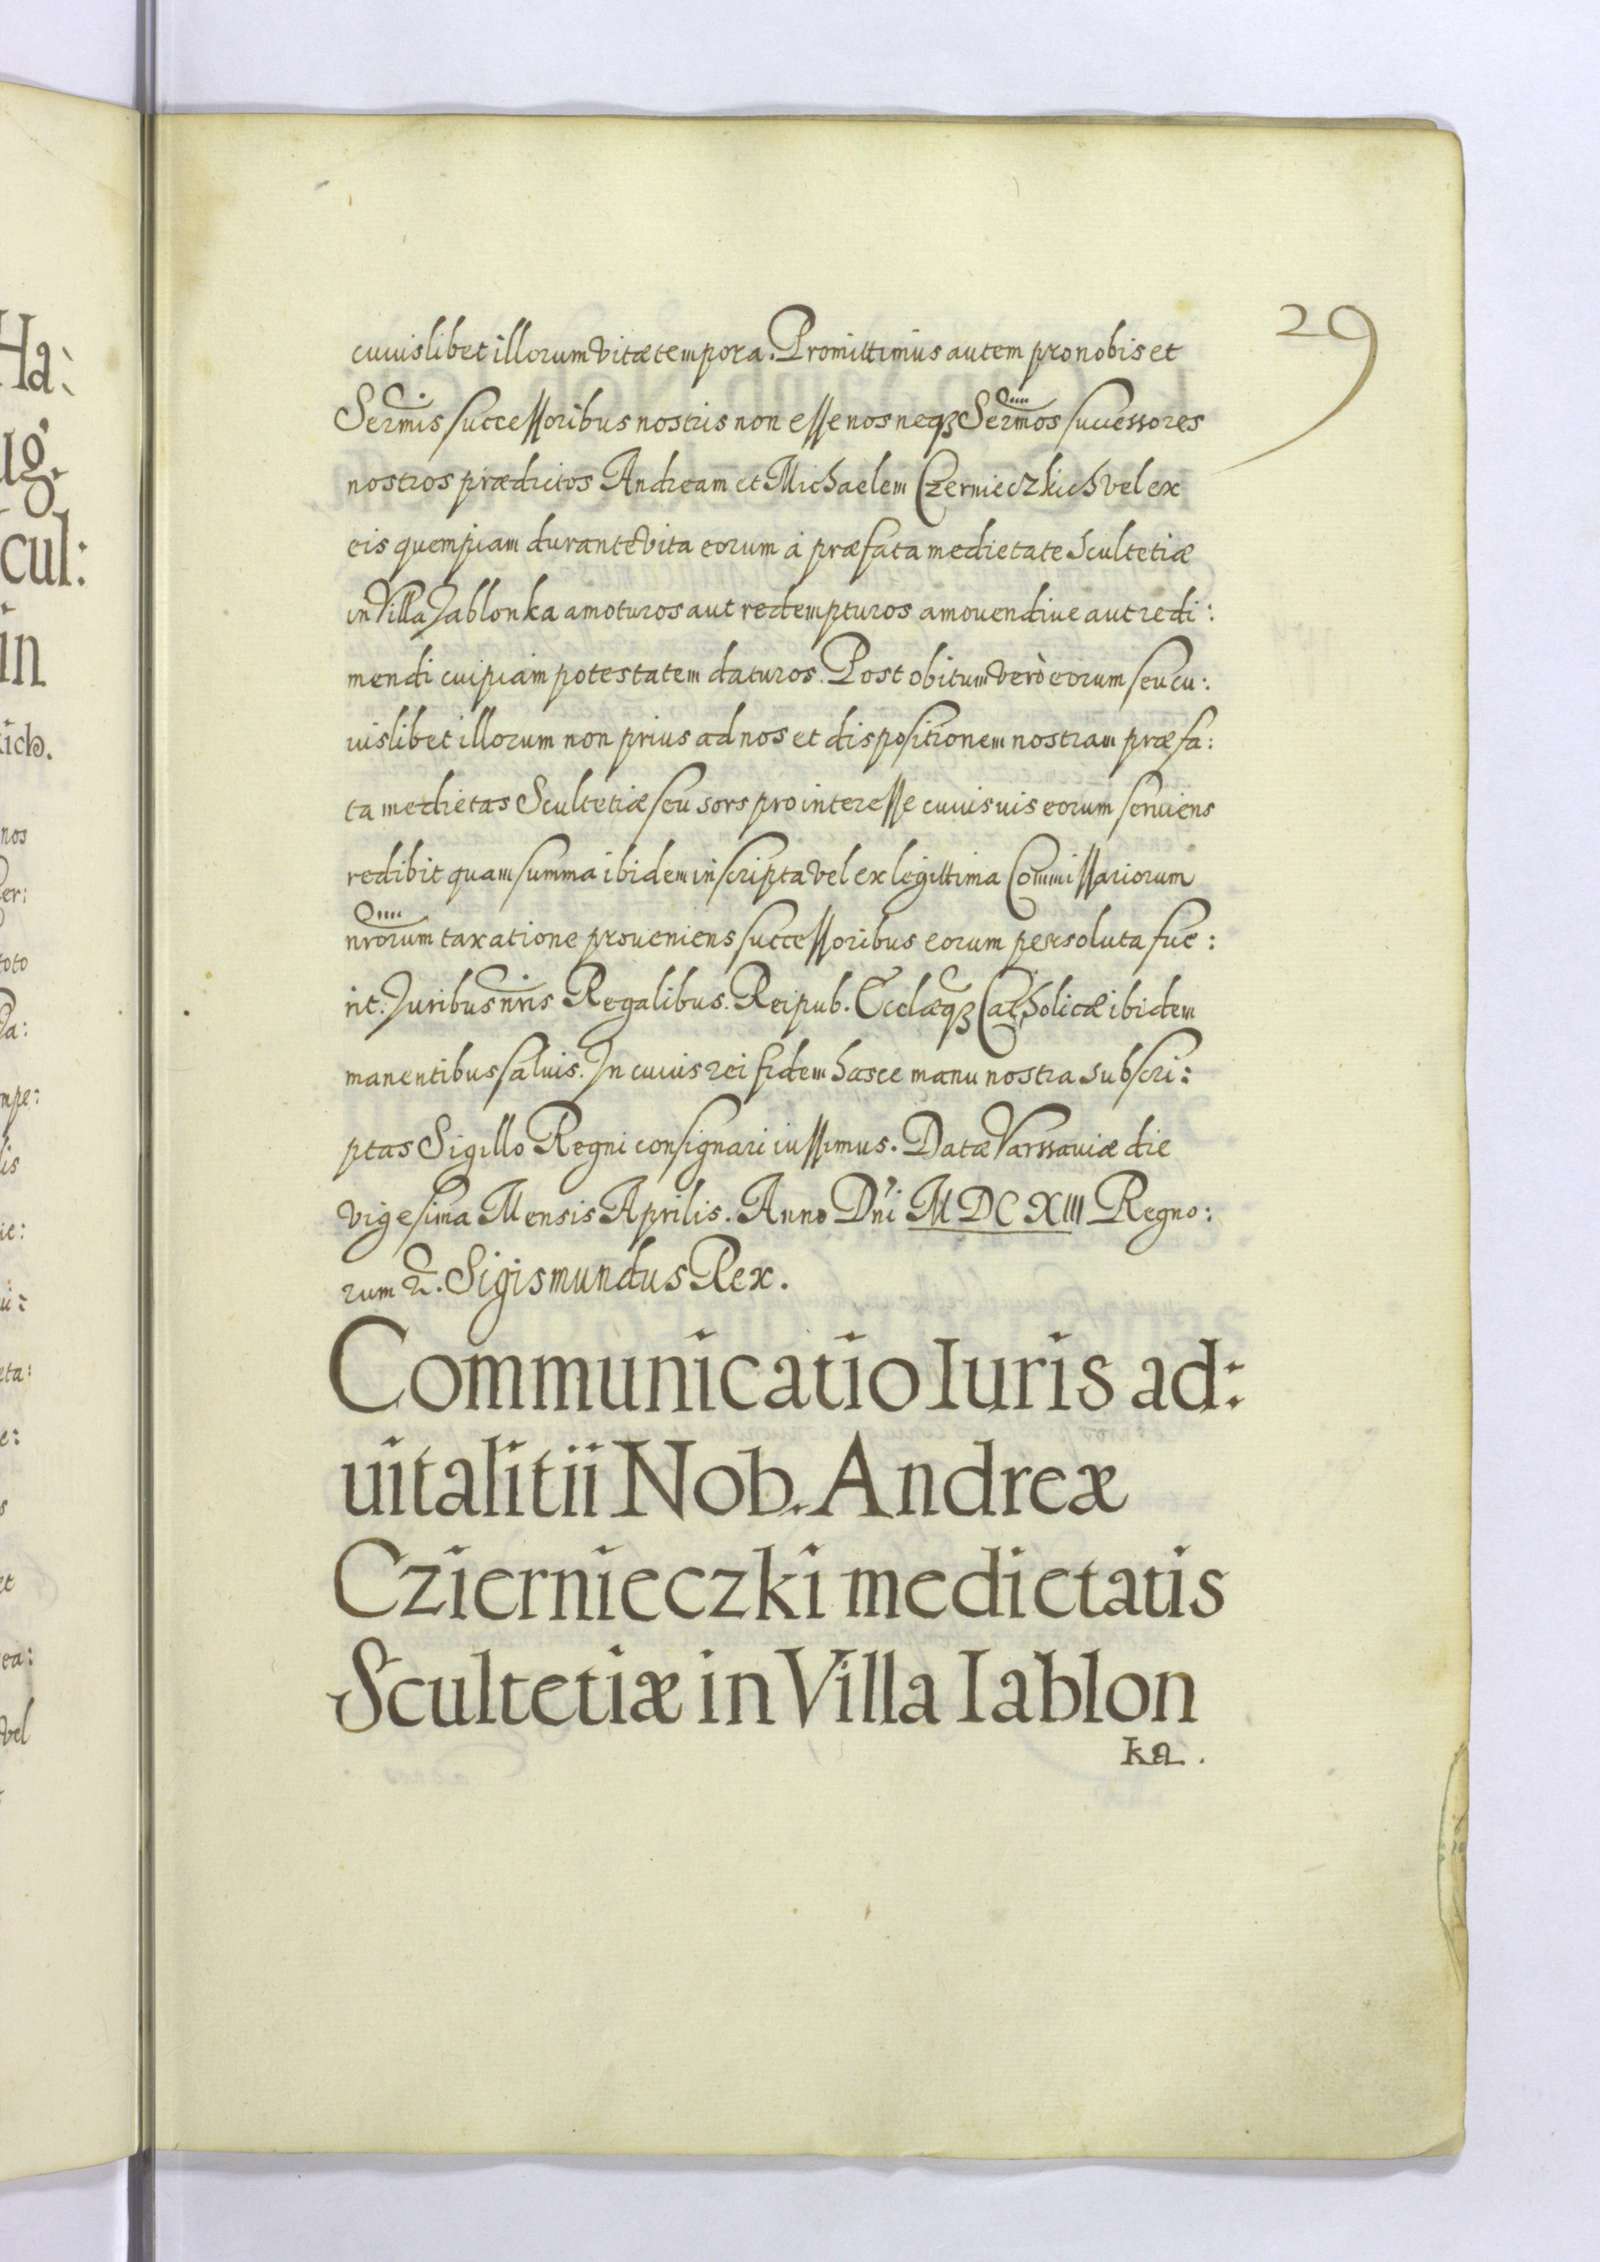 29
cuiuslibet illorum vitæ tempora. Promittimus autem pro nobis et
Sermis successoribus nostris non esse nos neq3 Sermos successores
nostros prædictos Andream et Michaelem Czernieczkich vel ex
eis quempiam durante vita eorum à præfata medietate Scultetiæ
in Villa Jablonka amoturos aut redempturos amouendiue aut redi:
mendi cuipiam potestatem daturos. Post obitum verò eorum seu cu:
iuslibet illorum non prius ad nos et dispositionem nostram præfa:
ta medietas Scultetiæ seu sors pro interesse cuiusuis eorum seruiens
redibit quam summa ibidem inscripta vel ex legittima Commissariorum
nrorum taxatione proueniens successoribus eorum persoluta fue:
rit. Juribus nris Regalibus. Reipub. Ecclæq3 Catholicæ ibidem
manentibus saluis. In cuius rei fidem hasce manu nostra subscri:
ptas Sigillo Regni consignari iussimus. Datæ Varssauiæ die
vigesima Mensis Aprilis. Anno Dni MDCXIII Regno:
rum Sigismundus Rex.
Communicatio Iuris ad:
uitalitii Nob. Andreæ
Cziernieczki medietatis
Scultetiæ in Villa Iablon
ka.
Ha:
ug.
cul:
in
kich.
nos
er:
toto
Da:
mpe:
lis
ie:
ui:
eta:
e:
s
et
ea:
vel